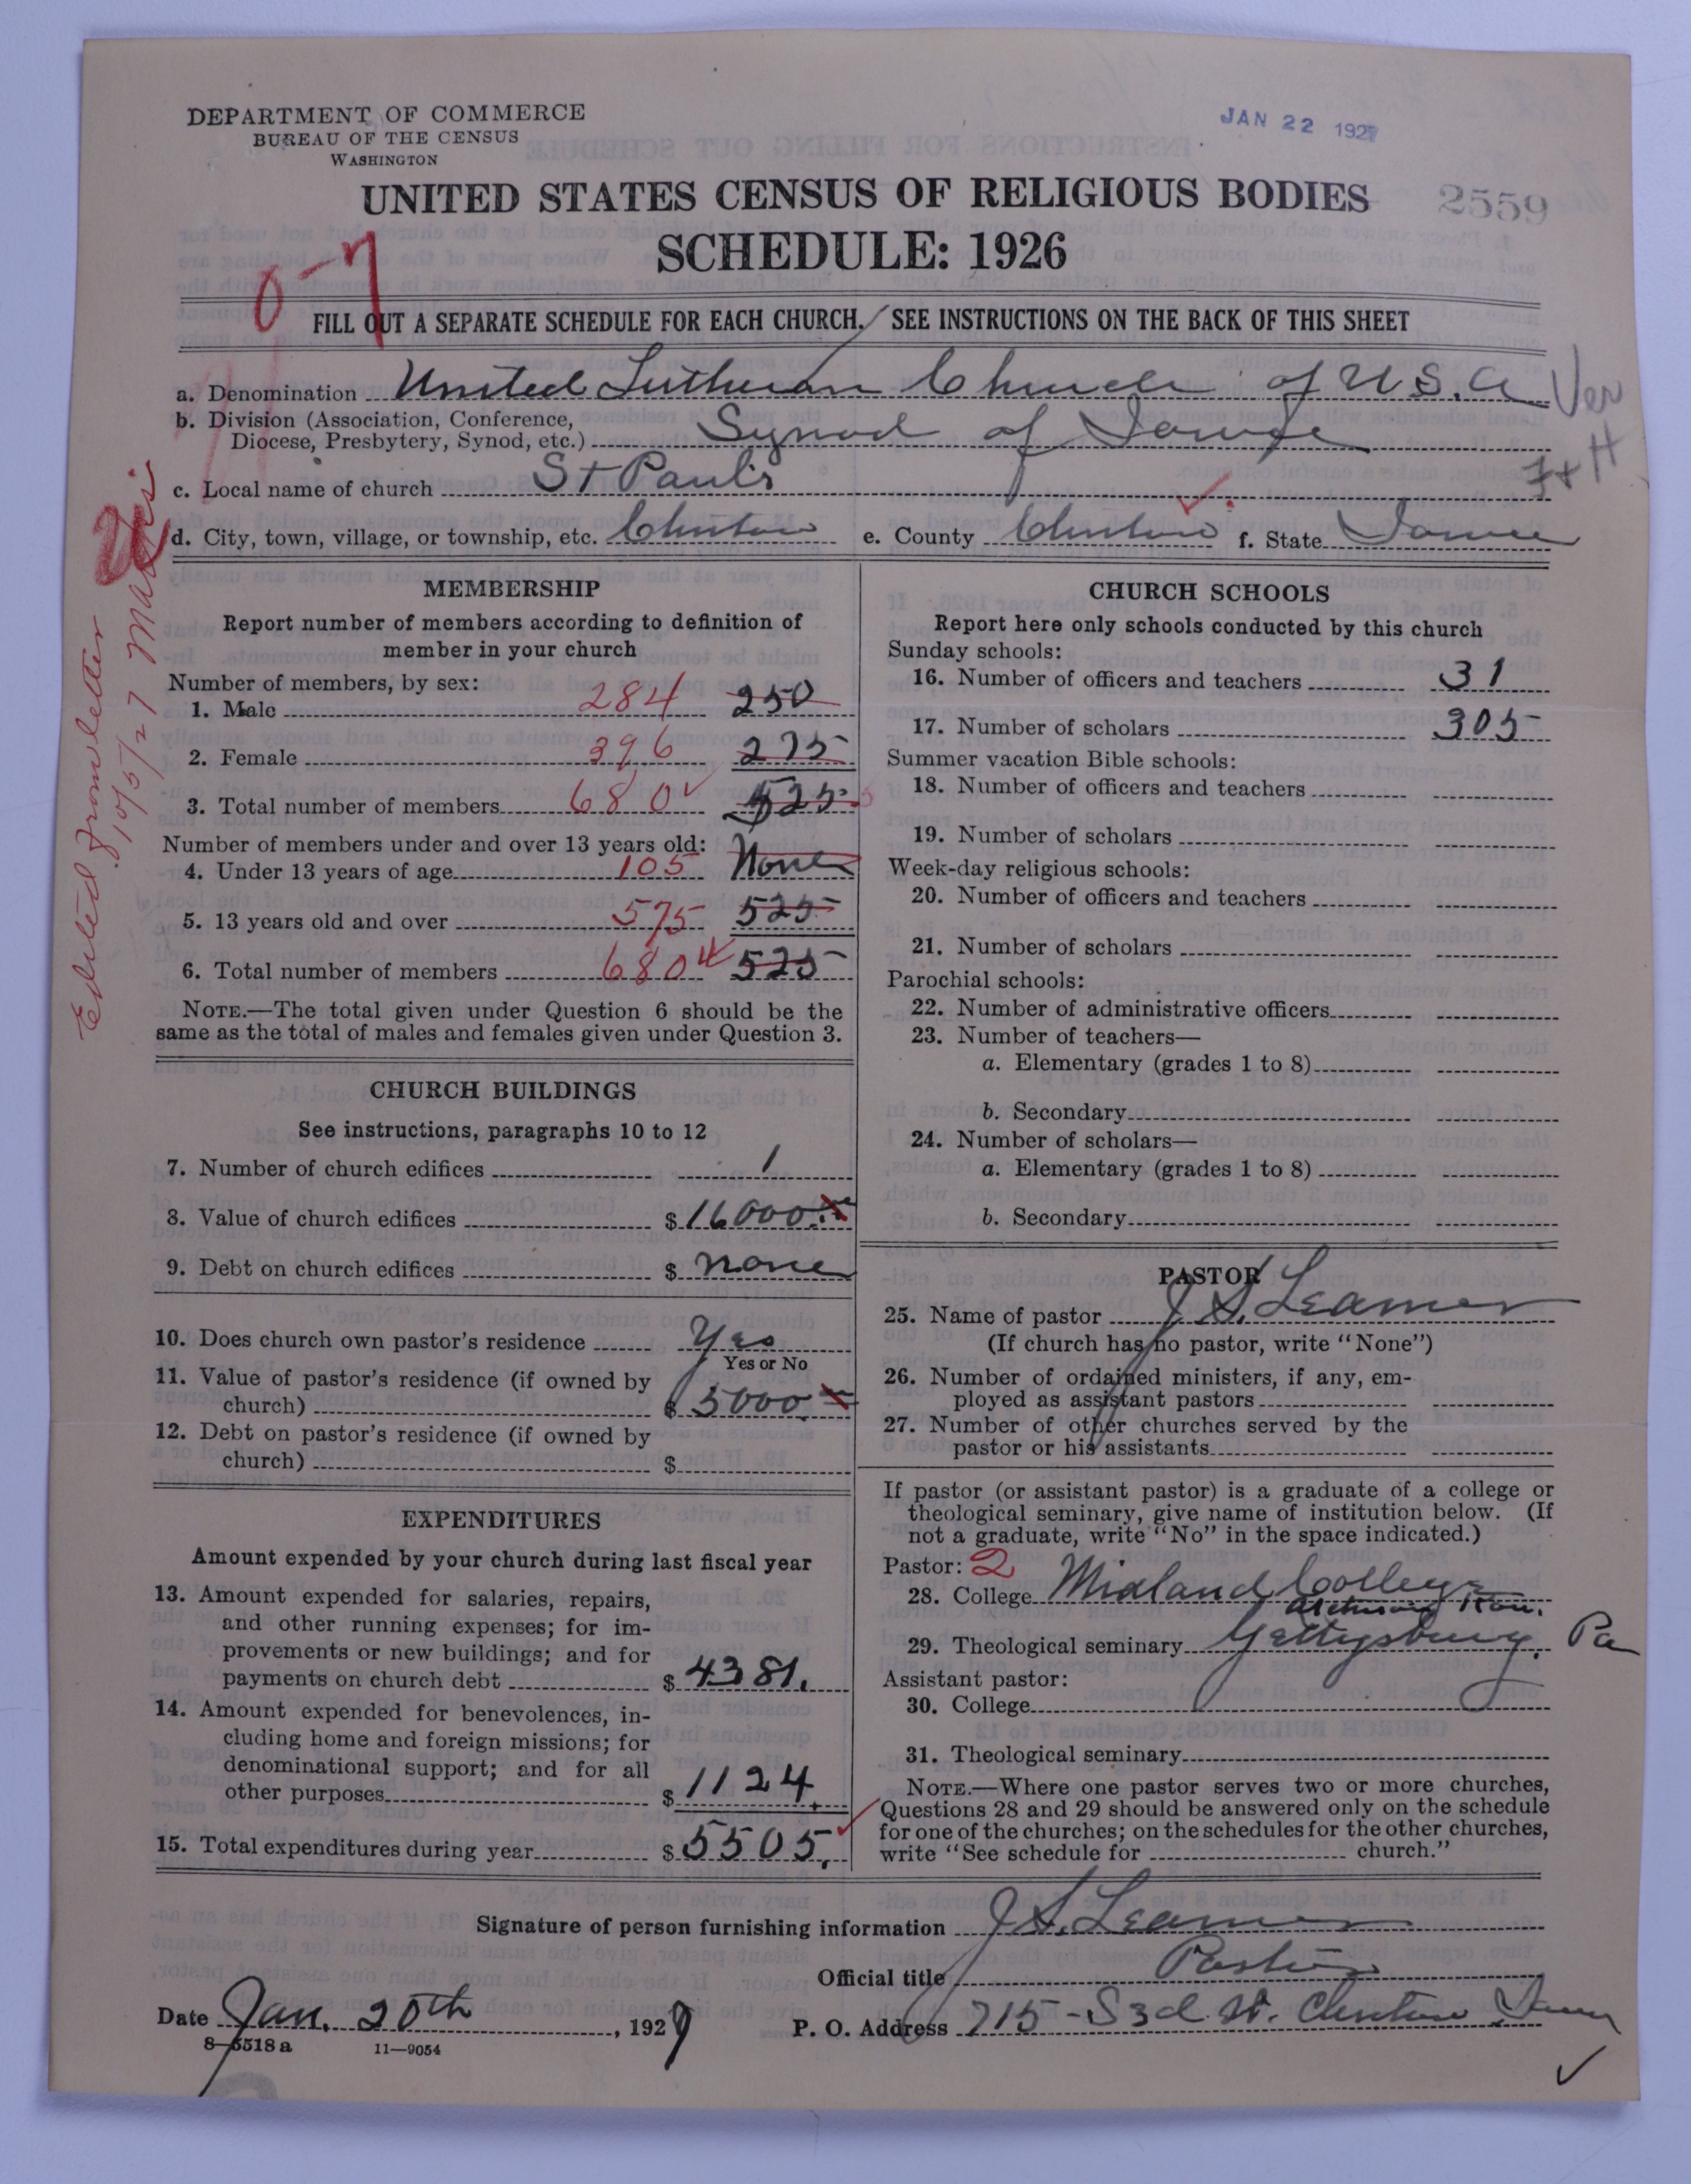 DEPARTMENT OF COMMERCE
BUREAU OF THE CENSUS
WASHINGTON
JAN 22 1927
UNITED STATES CENSUS OF RELIGIOUS BODIES
2559
SCHEDULE: 1926
0-7
FILL OUT A SEPARATE SCHEDULE FOR EACH CHURCH. SEE INSTRUCTIONS ON THE BACK OF THIS SHEET
a. Denomination United Lutheran Church of U.S.A Ver
b. Division (Association, Conference,
Diocese, Presbytery, Synod, etc.) Synod of Iowa H
c. Local name of church St Paul's
d. City, town, village, or township, etc. Clinton e. County Clinton f. State Iowa
Edited from letter
10/5/27
MEMBERSHIP
Report number of members according to definition of
member in your church
Number of members, by sex:
1. Male 284 250
2. Female 396 275
3. Total number of members 680 525
Number of members under and over 13 years old:
4. Under 13 years of age 105 None
5. 13 years old and over 575 525
6. Total number of members 680 525
NOTE.—The total given under Question 6 should be the
same as the total of males and females given under Question 3.
CHURCH BUILDINGS
See instructions, paragraphs 10 to 12
7. Number of church edifices 1
8. Value of church edifices $ 16000.
9. Debt on church edifices $ none
10. Does church own pastor's residence Yes
Yes or No
11. Value of pastor's residence (if owned by
church) $ 5000.
12. Debt on pastor's residence (if owned by
church) $
EXPENDITURES
Amount expended by your church during last fiscal year
13. Amount expended for salaries, repairs,
and other running expenses; for im-
provements or new buildings; and for
payments on church debt $ 4381.
14. Amount expended for benevolences, in-
cluding home and foreign missions; for
denominational support; and for all
other purposes $ 1124.
15. Total expenditures during year $ 5505.
CHURCH SCHOOLS
Report here only schools conducted by this church
Sunday schools:
16. Number of officers and teachers 31
17. Number of scholars 305
Summer vacation Bible schools:
18. Number of officers and teachers
19. Number of scholars
Week-day religious schools:
20. Number of officers and teachers
21. Number of scholars
Parochial schools:
22. Number of administrative officers
23. Number of teachers—
a. Elementary (grades 1 to 8)
b. Secondary
24. Number of scholars—
a. Elementary (grades 1 to 8)
b. Secondary
PASTOR
25. Name of pastor J S. Leamer
(If church has no pastor, write "None")
26. Number of ordained ministers, if any, em-
ployed as assistant pastors
27. Number of other churches served by the
pastor or his assistants
If pastor (or assistant pastor) is a graduate of a college or
theological seminary, give name of institution below. (If
not a graduate, write "No" in the space indicated.)
Pastor: 2
28. College Midland College
Atchison Kan.
29. Theological seminary Gettysburg, Pa
Assistant pastor:
30. College
31. Theological seminary
NOTE.—Where one pastor serves two or more churches,
Questions 28 and 29 should be answered only on the schedule
for one of the churches; on the schedules for the other churches,
write "See schedule for church."
Signature of person furnishing information J S. Leamer
Official title Pastor
Date Jan. 20th, 1927 P. O. Address 715 - S 3d St. Clinton Iowa
8—5518 a 11—9054